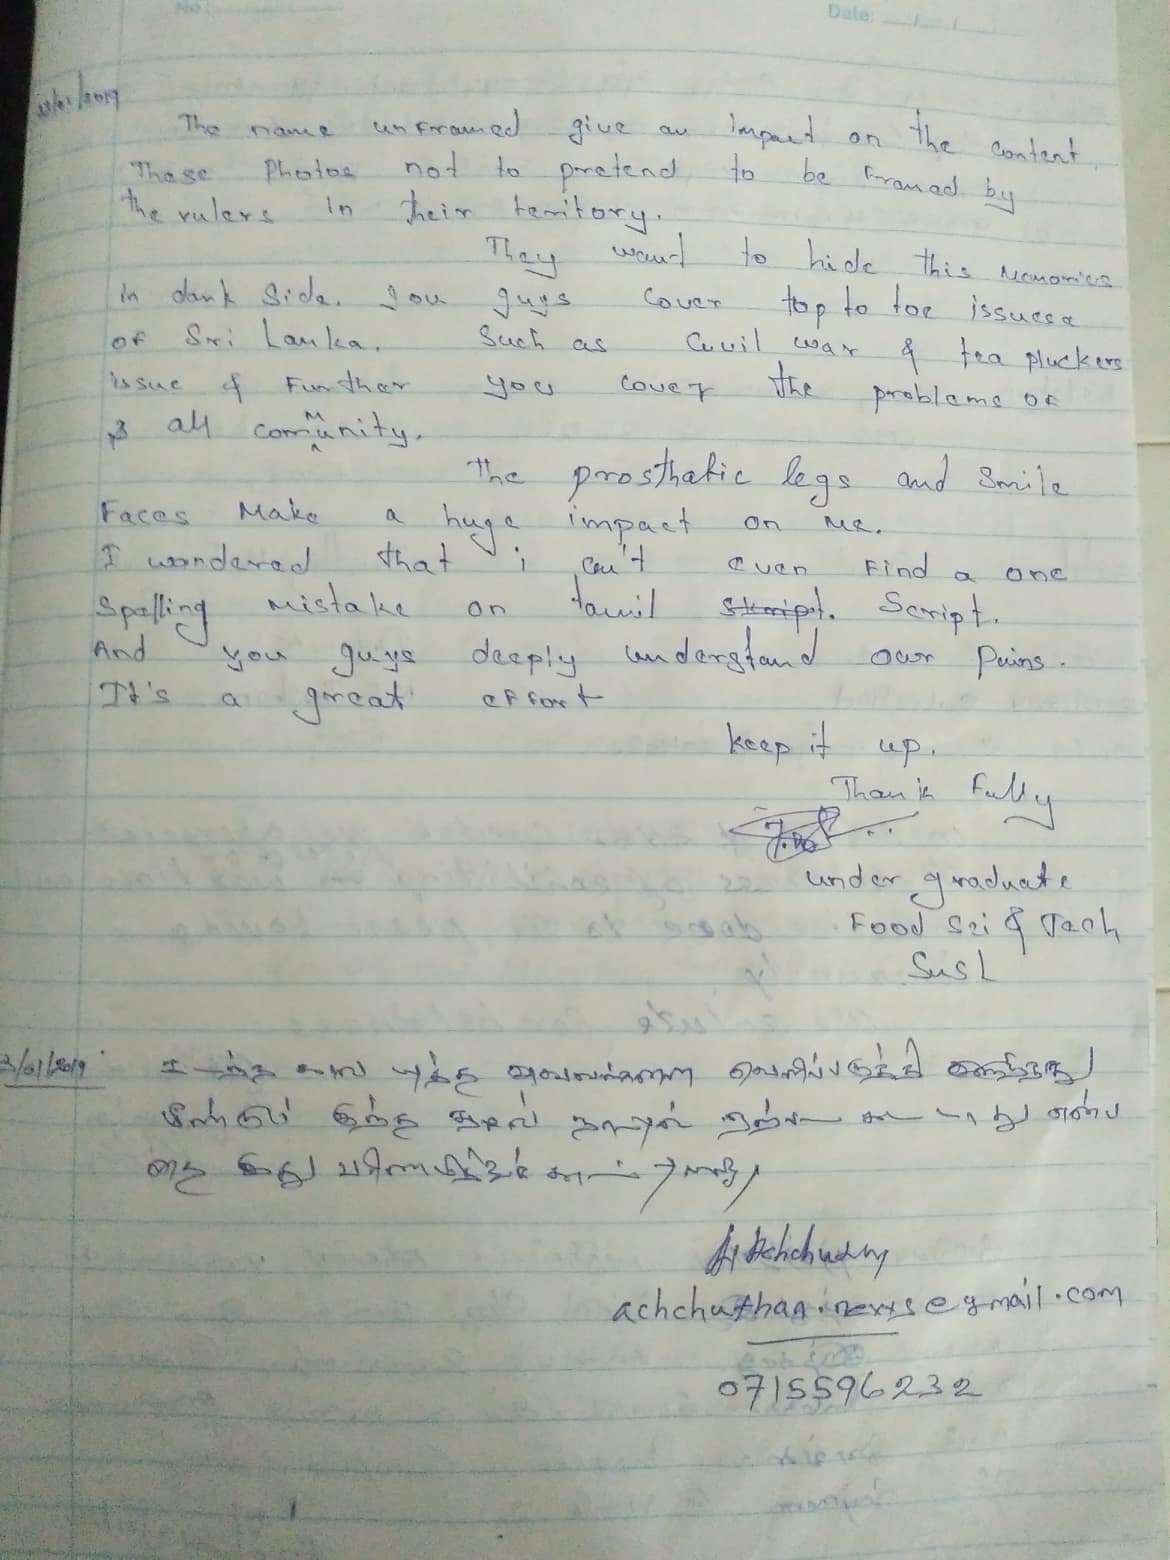 No: Date: __/__/__
23/01/2019
The name unframed give an impact on the content.
These Photos not to pretend to be framed by
the rulers in their territory.
They want to hide this Memories
in dark side. you guys cover top to toe issuese
of Sri Lanka. Such as Civil war & tea pluckers
issue & Further you cover the problems of
all community.
The prosthatic legs and Smile
Faces Make a huge impact on Me.
I wondered that i can't even Find a one
Spelling Mistake on tamil Skript. Script.
And you guys deeply understand our Pains.
It's a great effort
keep it up.
Thank Fully
under graduate
Food Sci & Tech
SusL
3/01/2019
கடந்த கால யுத்த அவலங்களை வெளிப்படுத்தி
மீண்டும் இந்த நாட்டில் கூடாது என்ப
தை இது
achchuthan.nexxs@gmail.com
0715596232